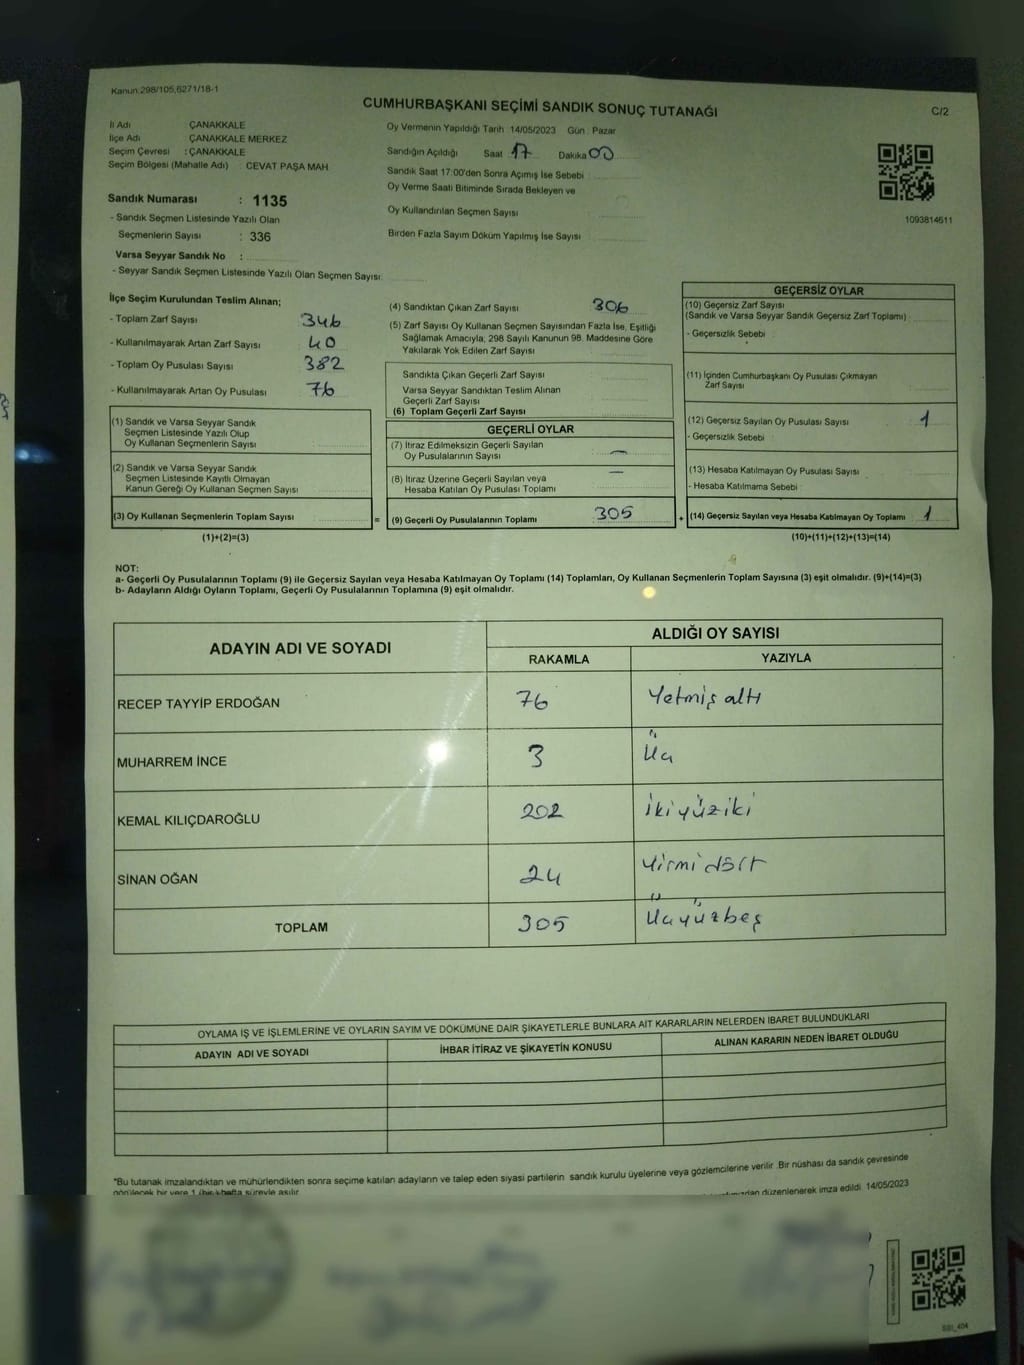 Kanun:298/105,6271/18-1
CUMHURBAŞKANI SEÇİMİ SANDIK SONUÇ TUTANAĞI
C/2
İl Adı ÇANAKKALE
İlçe Adı ÇANAKKALE MERKEZ
Seçim Çevresi : ÇANAKKALE
Seçim Bölgesi (Mahalle Adı) : CEVAT PAŞA MAH
Sandık Numarası : 1135
- Sandık Seçmen Listesinde Yazılı Olan
Seçmenlerin Sayısı : 336
Varsa Seyyar Sandık No :
- Seyyar Sandık Seçmen Listesinde Yazılı Olan Seçmen Sayısı:
Oy Vermenin Yapıldığı Tarih 14/05/2023 Gün : Pazar
Sandığın Açıldığı Saat 17 Dakika 00
Sandık Saat 17:00'den Sonra Açımış İse Sebebi
Oy Verme Saati Bitiminde Sırada Bekleyen ve
Oy Kullandırılan Seçmen Sayısı
Birden Fazla Sayım Döküm Yapılmış İse Sayısı
1093814611
İlçe Seçim Kurulundan Teslim Alınan;
- Toplam Zarf Sayısı 346
- Kullanılmayarak Artan Zarf Sayısı 40
- Toplam Oy Pusulası Sayısı 382
- Kullanılmayarak Artan Oy Pusulası 76
(1) Sandık ve Varsa Seyyar Sandık
Seçmen Listesinde Yazılı Olup
Oy Kullanan Seçmenlerin Sayısı
(2) Sandık ve Varsa Seyyar Sandık
Seçmen Listesinde Kayıtlı Olmayan
Kanun Gereği Oy Kullanan Seçmen Sayısı
(3) Oy Kullanan Seçmenlerin Toplam Sayısı =
(1)+(2)=(3)
(4) Sandıktan Çıkan Zarf Sayısı 306
(5) Zarf Sayısı Oy Kullanan Seçmen Sayısından Fazla İse, Eşitliği
Sağlamak Amacıyla, 298 Sayılı Kanunun 98. Maddesine Göre
Yakılarak Yok Edilen Zarf Sayısı
Sandıkta Çıkan Geçerli Zarf Sayısı
Varsa Seyyar Sandıktan Teslim Alınan
Geçerli Zarf Sayısı
(6) Toplam Geçerli Zarf Sayısı
GEÇERLİ OYLAR
(7) İtiraz Edilmeksizin Geçerli Sayılan
Oy Pusulalarının Sayısı —
(8) İtiraz Üzerine Geçerli Sayılan veya
Hesaba Katılan Oy Pusulası Toplamı —
(9) Geçerli Oy Pusulalarının Toplamı 305 +
GEÇERSİZ OYLAR
(10) Geçersiz Zarf Sayısı
(Sandık ve Varsa Seyyar Sandık Geçersiz Zarf Toplamı)
- Geçersizlik Sebebi :
(11) İçinden Cumhurbaşkanı Oy Pusulası Çıkmayan
Zarf Sayısı
(12) Geçersiz Sayılan Oy Pusulası Sayısı 1
- Geçersizlik Sebebi
(13) Hesaba Katılmayan Oy Pusulası Sayısı
- Hesaba Katılmama Sebebi
(14) Geçersiz Sayılan veya Hesaba Katılmayan Oy Toplamı 1
(10)+(11)+(12)+(13)=(14)
NOT:
a- Geçerli Oy Pusulalarının Toplamı (9) ile Geçersiz Sayılan veya Hesaba Katılmayan Oy Toplamı (14) Toplamları, Oy Kullanan Seçmenlerin Toplam Sayısına (3) eşit olmalıdır. (9)+(14)=(3)
b- Adayların Aldığı Oyların Toplamı, Geçerli Oy Pusulalarının Toplamına (9) eşit olmalıdır.
ADAYIN ADI VE SOYADI ALDIĞI OY SAYISI
RAKAMLA YAZIYLA
RECEP TAYYİP ERDOĞAN 76 Yetmiş altı
MUHARREM İNCE 3 Üç
KEMAL KILIÇDAROĞLU 202 İkiyüziki
SİNAN OĞAN 24 Yirmi dört
TOPLAM 305 Üçyüzbeş
OYLAMA İŞ VE İŞLEMLERİNE VE OYLARIN SAYIM VE DÖKÜMÜNE DAİR ŞİKAYETLERLE BUNLARA AİT KARARLARIN NELERDEN İBARET BULUNDUKLARI
ADAYIN ADI VE SOYADI İHBAR İTİRAZ VE ŞİKAYETİN KONUSU ALINAN KARARIN NEDEN İBARET OLDUĞU
*Bu tutanak imzalandıktan ve mühürlendikten sonra seçime katılan adayların ve talep eden siyasi partilerin sandık kurulu üyelerine veya gözlemcilerine verilir. Bir nüshası da sandık çevresinde
görülecek bir yere 1 (bir) hafta süreyle asılır. düzenlenerek imza edildi. 14/05/2023